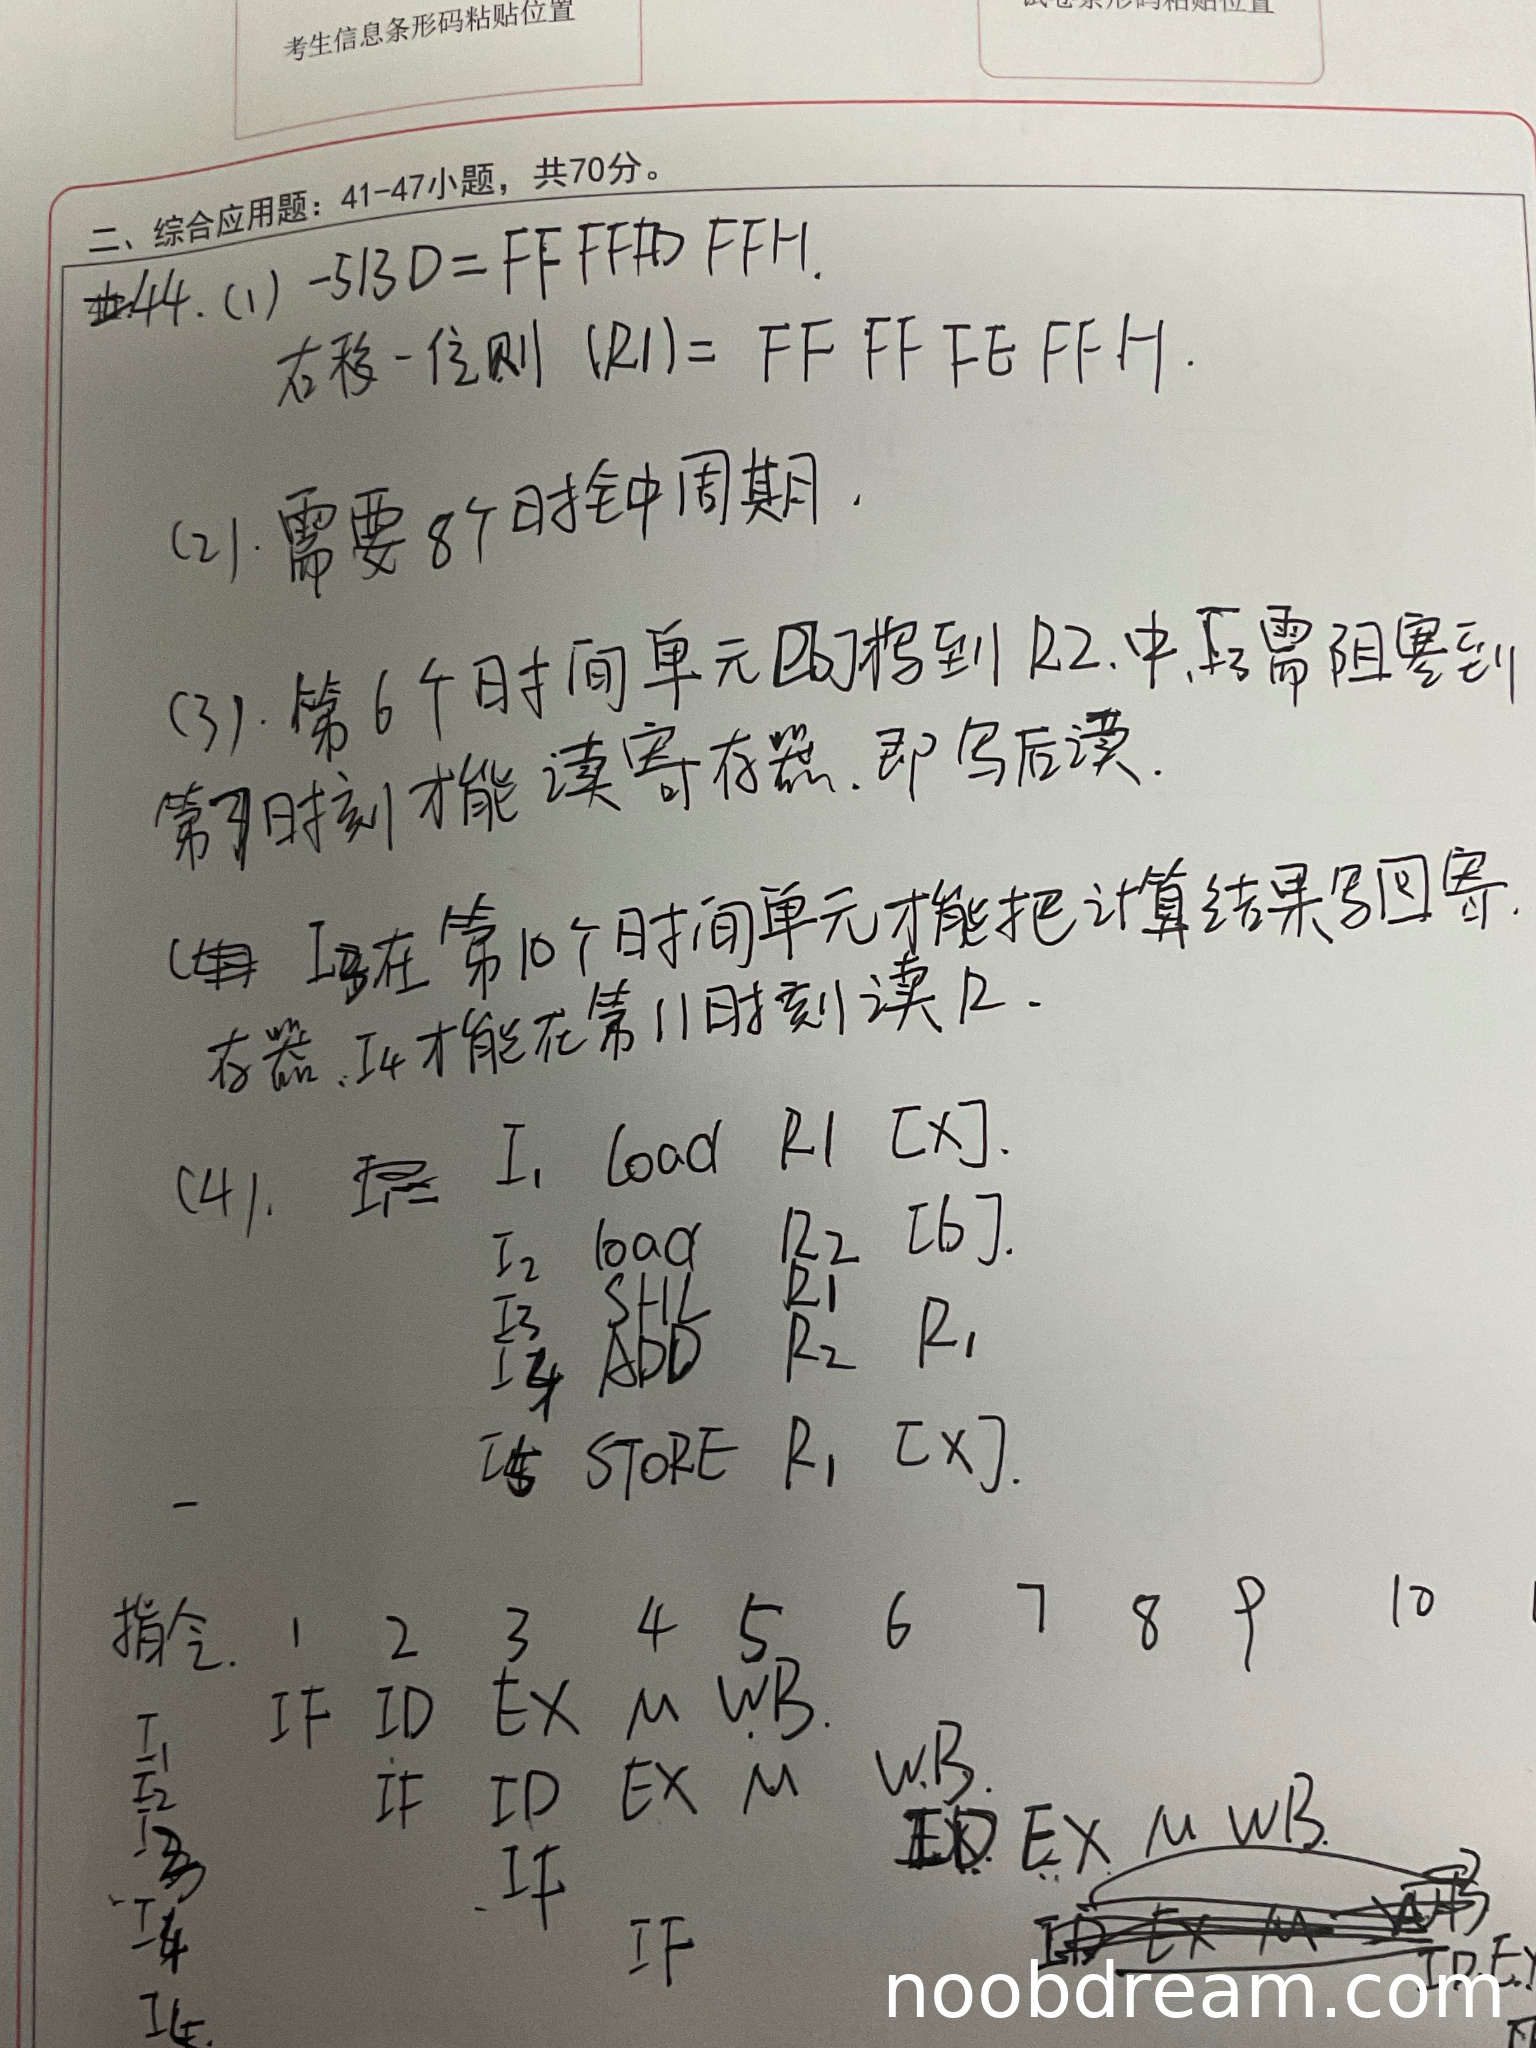 考生信息条形码粘贴位置
试卷条形码粘贴位置
二、综合应用题：41-47小题，共70分。
44.(1) -513D = FF FF FD FFH.
右移一位则 (R1) = FF FF FE FFH.
(2). 需要8个时钟周期.
(3). 第6个时间单元[b]才写到 R2.中,I3需阻塞到
第7时刻才能读寄存器.即写后读.
I3在第10个时间单元才能把计算结果写回寄.
存器.I4才能在第11时刻读R.
(4). I1 load R1 [X].
I2 load R2 [b].
I3 SHL R1
I4 ADD R2 R1
I5 STORE R1 [X].
指令. 1 2 3 4 5 6 7 8 9 10
I1 IF ID EX M WB.
I2 IF ID EX M W.B.
I3 IF ID EX M WB.
I4 IF ID EX M WB
ID.EX
I5.
noobdream.com